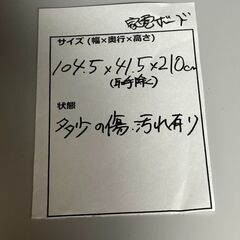 家電ボード
サイズ(幅×奥行×高さ)
104.5×41.5×210cm
(取手除く)
状態
多少の傷.汚れ有り